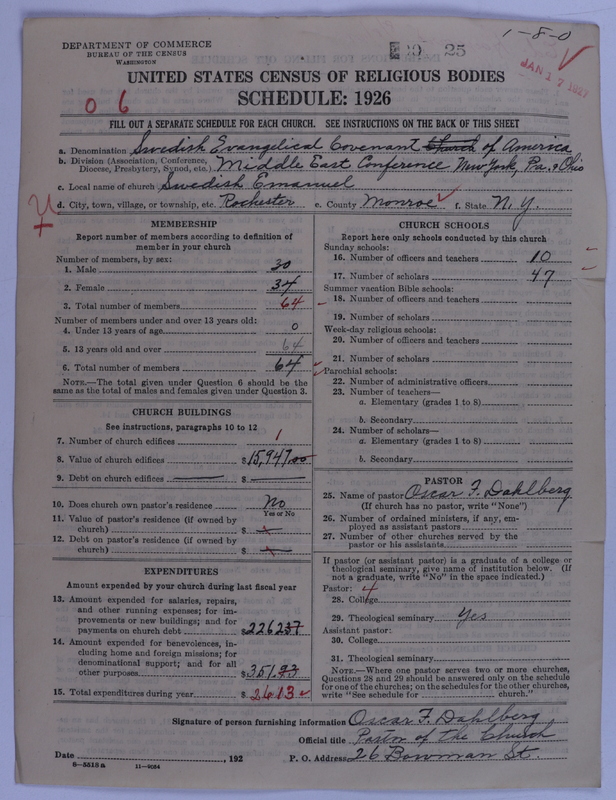 1-8-0
DEPARTMENT OF COMMERCE
BUREAU OF THE CENSUS
WASHINGTON
25
JAN 17 1927
UNITED STATES CENSUS OF RELIGIOUS BODIES
SCHEDULE: 1926
0 6
FILL OUT A SEPARATE SCHEDULE FOR EACH CHURCH. SEE INSTRUCTIONS ON THE BACK OF THIS SHEET
a. Denomination Swedish Evangelical Covenant Church of America
b. Division (Association, Conference, Diocese, Presbytery, Synod, etc.) Middle East Conference New York, Pa. & Ohio
c. Local name of church Swedish Emanuel
d. City, town, village, or township, etc. Rochester e. County Monroe f. State N. Y.
MEMBERSHIP
Report number of members according to definition of
member in your church
Number of members, by sex:
1. Male 30
2. Female 34
3. Total number of members 64
Number of members under and over 13 years old:
4. Under 13 years of age 0
5. 13 years old and over 64
6. Total number of members 64
NOTE.—The total given under Question 6 should be the
same as the total of males and females given under Question 3.
CHURCH BUILDINGS
See instructions, paragraphs 10 to 12
7. Number of church edifices 1
8. Value of church edifices $15,947.00
9. Debt on church edifices $
10. Does church own pastor's residence No
Yes or No
11. Value of pastor's residence (if owned by
church) $
12. Debt on pastor's residence (if owned by
church) $
EXPENDITURES
Amount expended by your church during last fiscal year
13. Amount expended for salaries, repairs,
and other running expenses; for im-
provements or new buildings; and for
payments on church debt $226237
14. Amount expended for benevolences, in-
cluding home and foreign missions; for
denominational support; and for all
other purposes $351.23
15. Total expenditures during year $2613
CHURCH SCHOOLS
Report here only schools conducted by this church
Sunday schools:
16. Number of officers and teachers 10
17. Number of scholars 47
Summer vacation Bible schools:
18. Number of officers and teachers
19. Number of scholars
Week-day religious schools:
20. Number of officers and teachers
21. Number of scholars
Parochial schools:
22. Number of administrative officers
23. Number of teachers—
a. Elementary (grades 1 to 8)
b. Secondary
24. Number of scholars—
a. Elementary (grades 1 to 8)
b. Secondary
PASTOR
25. Name of pastor Oscar F. Dahlberg
(If church has no pastor, write "None")
26. Number of ordained ministers, if any, em-
ployed as assistant pastors
27. Number of other churches served by the
pastor or his assistants
If pastor (or assistant pastor) is a graduate of a college or
theological seminary, give name of institution below. (If
not a graduate, write "No" in the space indicated.)
Pastor:
28. College
29. Theological seminary Yes
Assistant pastor:
30. College
31. Theological seminary
NOTE.—Where one pastor serves two or more churches,
Questions 28 and 29 should be answered only on the schedule
for one of the churches; on the schedules for the other churches,
write "See schedule for church."
Signature of person furnishing information Oscar F. Dahlberg
Official title Pastor of the Church
Date , 192 P. O. Address 26 Bowman St.
11-9064